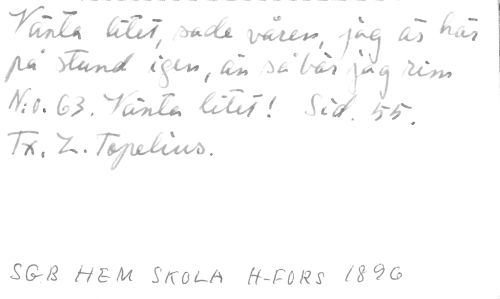 Vänta litet, sade våren, jag är här
på stund igen, än så bär jag rim
N:o. 63. Vänta litet! Sid. 55.
Tx. Z. Topelius.
SGB HEM SKOLA H-FORS 1896